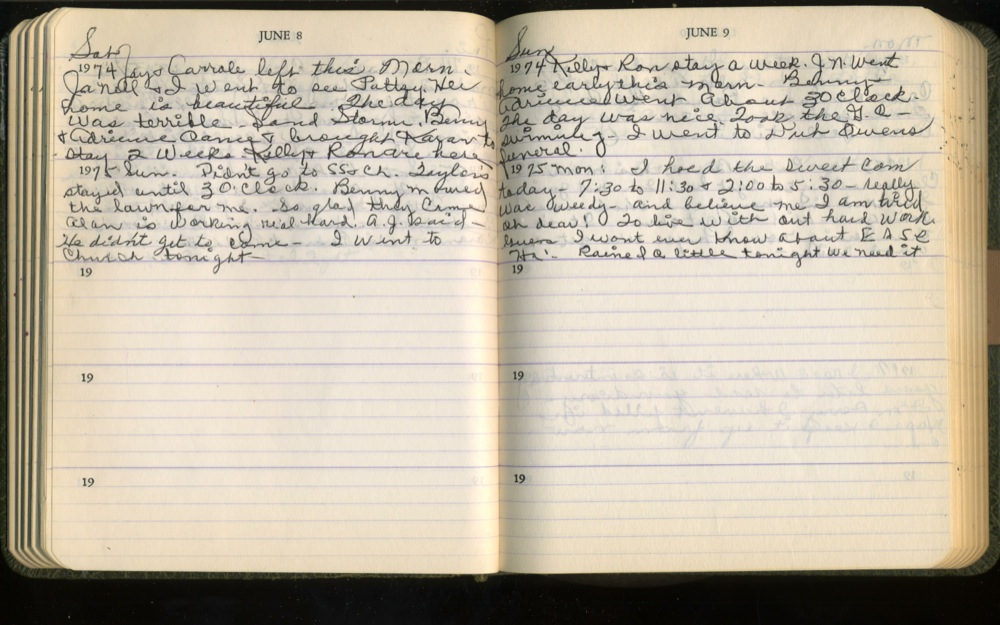 JUNE 8
Sat
1974 Jay & Carrole left this Morn.
Janell & I went to see Patty. Her
home is beautiful. The day
was terrible. Sand Storm. Benny
& Adrienne Came & brought Karan to
stay 2 Weeks. Kelly & Ron are here
1975 Sun. Didn't go to SS & Ch. Taylors
stayed until 3 O.Clock. Benny mowed
the lawn for me. So glad they Came
Alan is working real hard. A.J. said -
He didn't get to come - I went to
Church tonight -
19
19
19
JUNE 9
Sun
1974 Kelly & Ron stay a week. J.N. went
home early this morn. Benny &
Adrienne went about 3 O Clock.
The day was nice. Took the G.
swimming - I went to Owens
funeral.
1975 mon: I hoed the Sweet Corn
today - 7:30 to 11:30 & 2:00 to 5:30 - really
was weedy - and believe me I am tired
oh dear! To live with out hard work.
Guess I wont ever know about EASE
Ha! Rained a little tonight we need it
19
19
19